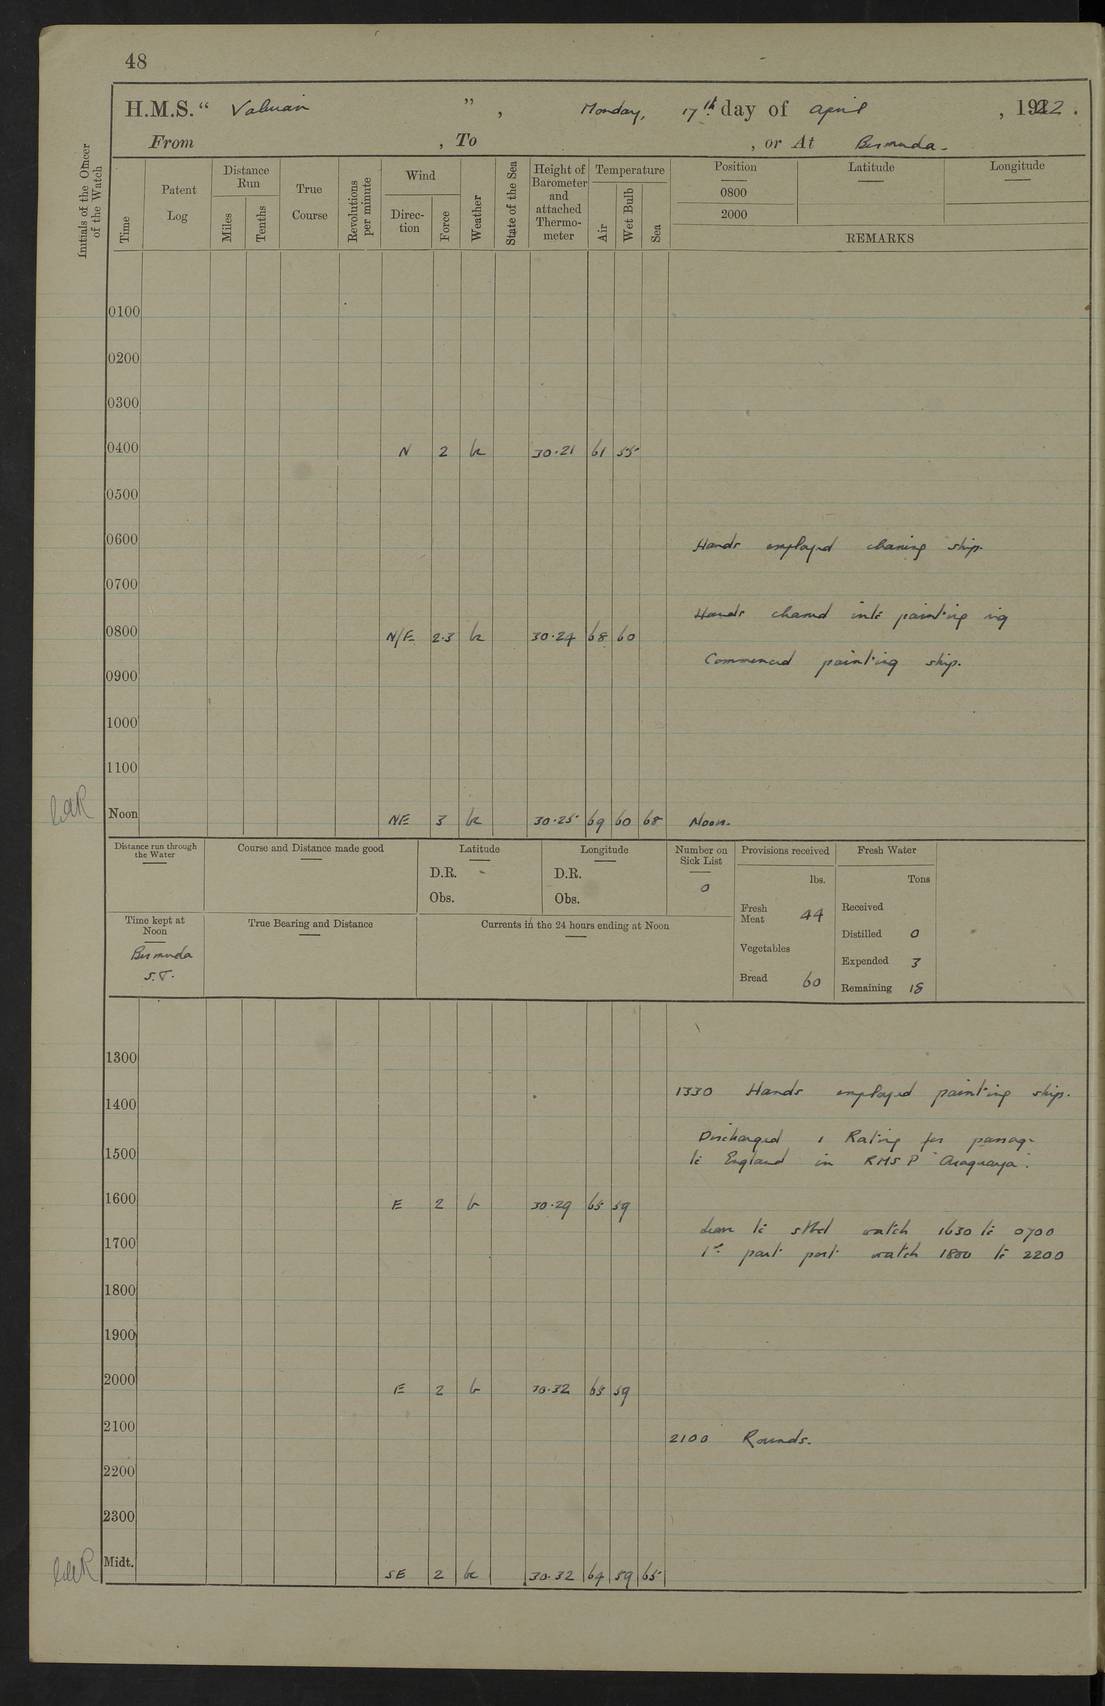 48
H.M.S. " Valerian ", Monday, 17th day of April, 1922.
From , To , or At Bermuda.
Initials of the Officer of the Watch
Time
Patent Log
Distance Run
Miles
Tenths
True Course
Revolutions per minute
Wind
Direction
Force
Weather
State of the Sea
Height of Barometer and attached Thermometer
Temperature
Air
Wet Bulb
Sea
Position
0800
2000
Latitude
Longitude
REMARKS
0100
0200
0300
0400 N 2 bc 30.21 61 55
0500
0600 Hands employed cleaning ship.
0700
Hands cleaned into painting rig
0800 N/E 2.3 bc 30.24 68 60
Commenced painting ship.
0900
1000
1100
Noon NE 3 bc 30.25 69 60 68 Noon.
Distance run through the Water
Course and Distance made good
Latitude
D.R.
Obs.
Longitude
D.R.
Obs.
Number on Sick List
0
Provisions received
lbs.
Fresh Meat 44
Vegetables
Bread 60
Fresh Water
Tons
Received
Distilled 0
Expended 3
Remaining 18
Time kept at Noon
Bermuda
S.T.
True Bearing and Distance
Currents in the 24 hours ending at Noon
1300
1330 Hands employed painting ship.
1400
Discharged 1 Rating for passage
1500
to England in RMSP "Araguaya".
1600 E 2 b 30.29 65 59
Leave to stbd watch 1630 to 0700
1700
1st part port watch 1800 to 2200
1800
1900
2000 E 2 b 30.32 63 59
2100
2100 Rounds.
2200
2300
Midt. SE 2 bc 30.32 64 59 65